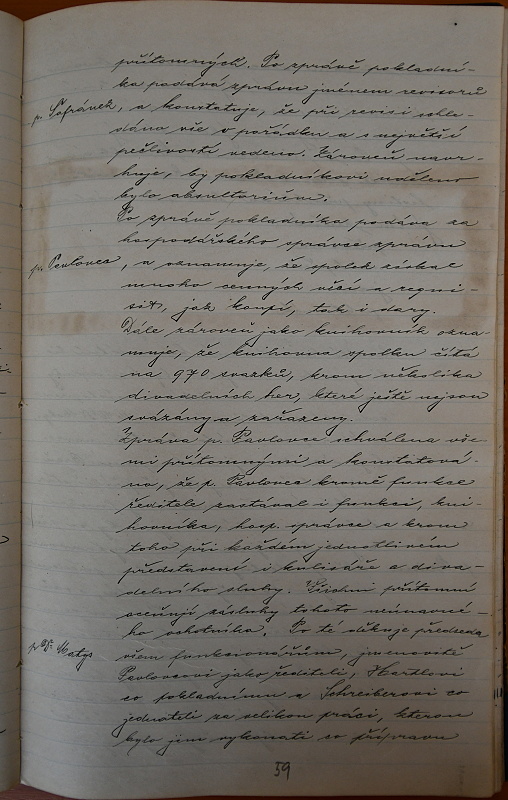 přítomných. Po zprávě pokladní-
ka podává zprávu jménem revisorů
p. Šofránek, a konstatuje, že při revisi shle-
dáno vše v pořádku a s největší
pečlivostí vedeno. Zároveň navr-
huje, by pokladníkovi uděleno
bylo absolutorium.
Po zprávě pokladníka podává za
hospodářského správce zprávu
p. Pavlovec, a oznamuje, že spolek získal
mnoho cenných věcí a requi-
sit, jak koupí, tak i dary.
Dále zároveň jako knihovník ozna-
muje, že knihovna spolku čítá
na 970 svazků, krom několika
divadelních her, které ještě nejsou
svázány a zařazeny.
Zpráva p. Pavlovce schválena vše-
mi přítomnými a konstatová-
no, že p. Pavlovec kromě funkce
ředitele zastával i funkci, kni-
hovníka, hosp. správce a krom
toho při každém jednotlivém
představení i kulisáře a diva-
delního sluhy. Všichni přítomní
oceňují zásluhy tohoto neúnavné-
ho ochotníka. Po té děkuje předseda
p. Matys
všem funkcionářům, jmenovitě
Pavlovcovi jako řediteli, Hartlovi
co pokladnímu a Schreiberovi co
jednateli za velikou práci, kterou
bylo jim vykonati co přípravu
59